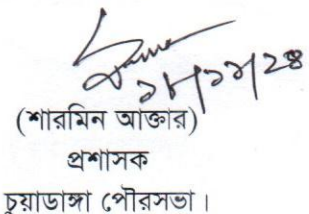 ১৮/১১/২৪
(শারমিন আক্তার)
প্রশাসক
চুয়াডাঙ্গা পৌরসভা।